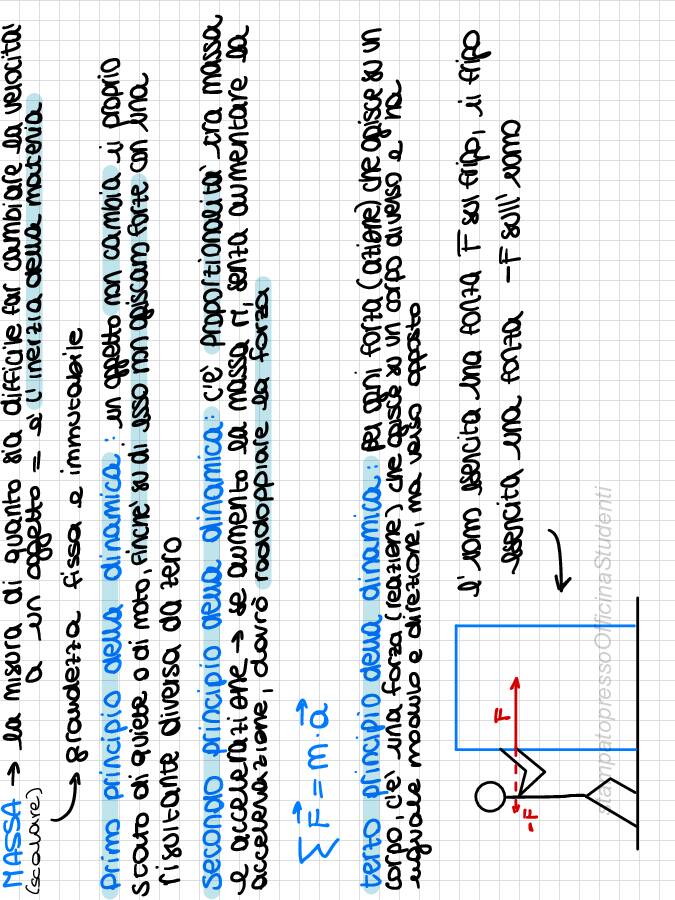 MASSA → la misura di quanto sia difficile far cambiare la velocità
(scalare) a un oggetto = è l'inerzia della materia
→ grandezza fissa e immutabile
Primo principio della dinamica: un oggetto non cambia il proprio
stato di quiete o di moto, finché su di esso non agiscano forze con una
risultante diversa da zero
Secondo principio della dinamica: c'è proporzionalità tra massa
e accelerazione → se aumento la massa ri, senza aumentare la
accelerazione, dovrò raddoppiare la forza
∑F⃗ = m·a⃗
terzo principio della dinamica: per ogni forza (azione) che agisce su un
corpo, c'è una forza (reazione) che agisce su un corpo diverso e ha
uguale modulo e direzione, ma verso opposto
l'uomo esercita una forza F sul frigo, il frigo
esercita una forza -F sull'uomo
F
-F
StampatopressoOfficinaStudenti